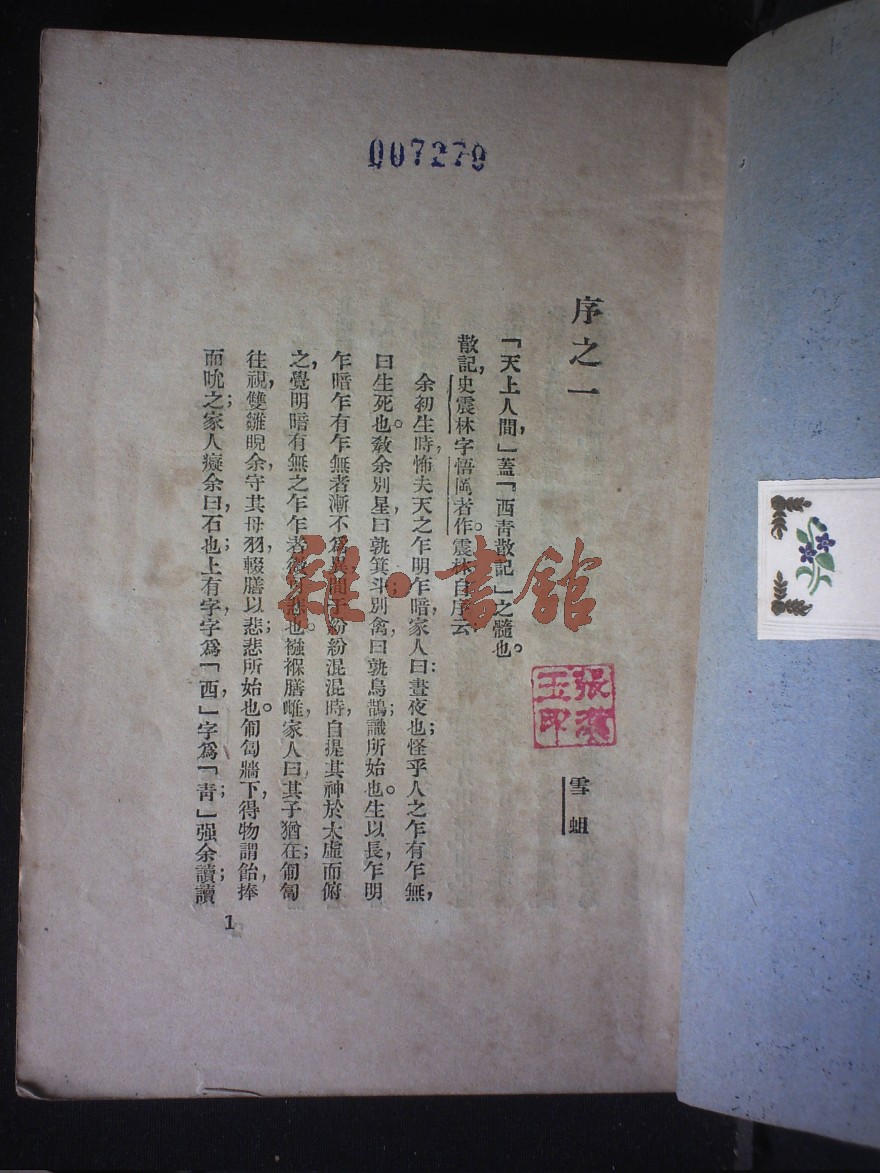 007279
序之一
雪蛆
「天上人間，」蓋「西青散記」之髓也。
散記，史震林字悟岡著作。震林自序云：
余初生時，怖夫天之乍明乍暗，家人曰：晝夜也；怪乎人之乍有乍無，
曰生死也。教余別星，曰孰箕斗；別禽，曰孰烏鵲；識所始也。生以長，乍明
乍暗乍有乍無者，漸不為異。間于紛紛混混時，自提其神於太虛而俯
之，覺明暗有無之乍乍者，微可悲也。襁褓膳雌，家人曰其子猶在；匍匐
往視，雙雛睨余，守其母羽，輟膳以悲；悲所始也。匍匐牆下，得物謂飴，捧
而吮之；家人癡余，曰石也；上有字，字為「西，」字為「青；」强余讀，讀；
1
張
玉印
雜·書館